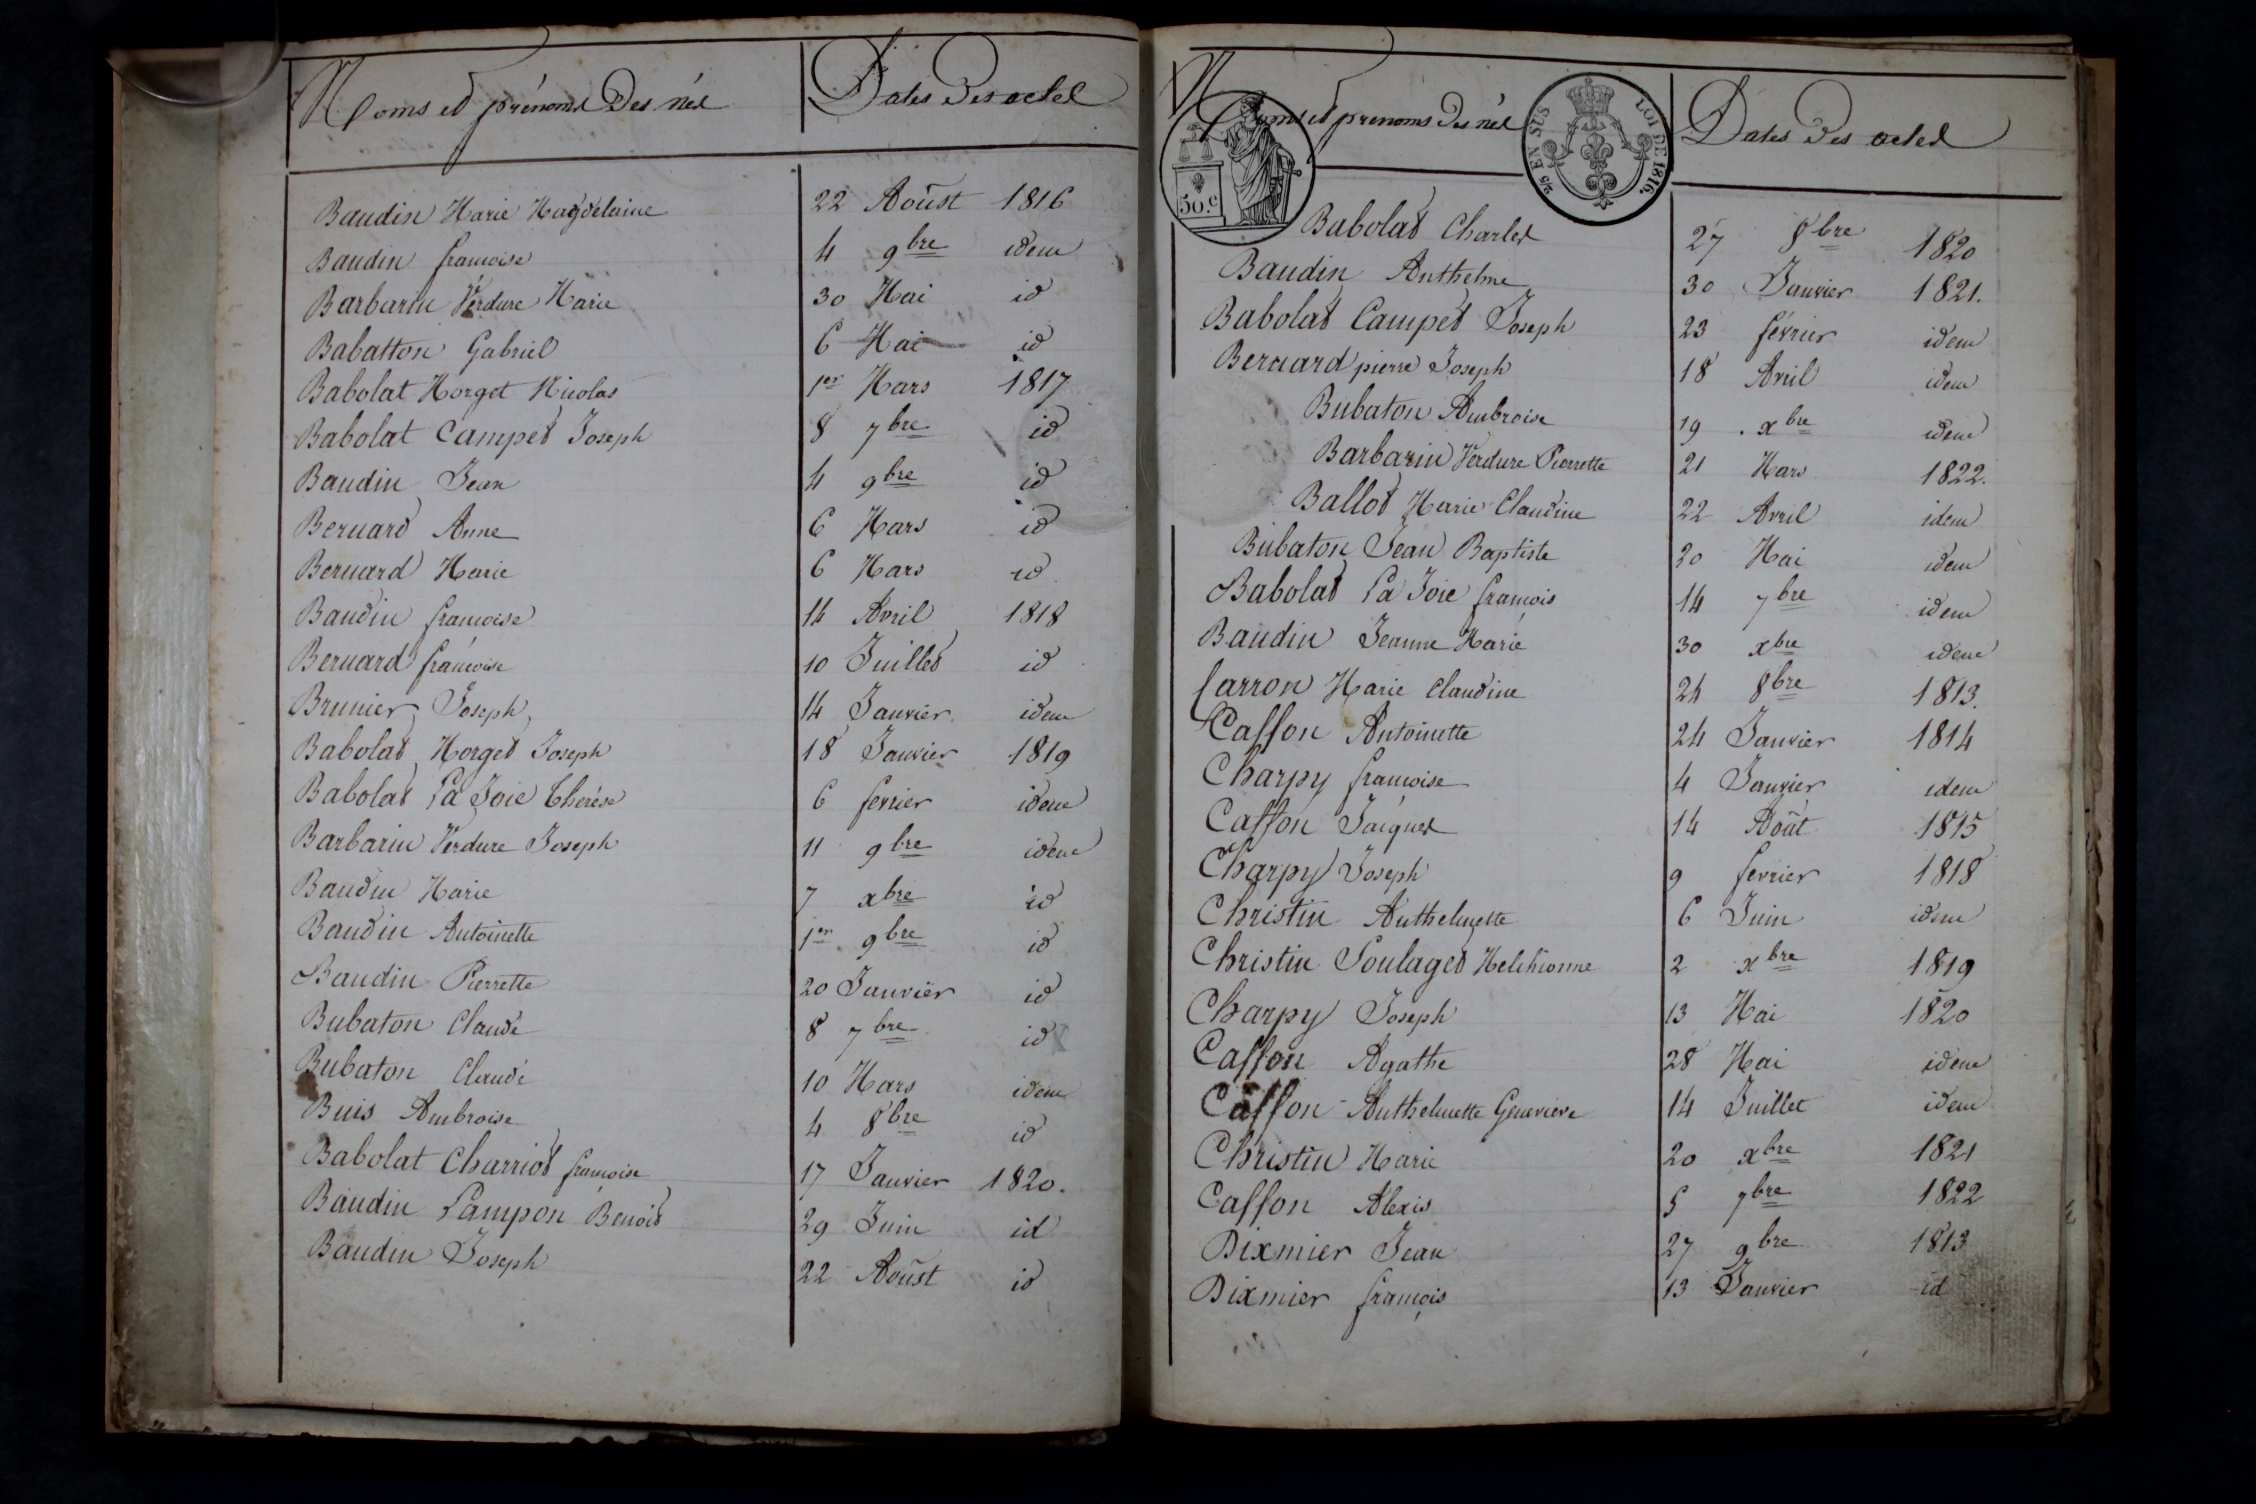 Noms et prénoms des nés Dates des actes
Baudin Marie Magdelaine 22 Aoust 1816
Baudin francoise 4 9bre idem
Barbarin Verdure Marie 30 Mai id
Babatton Gabriel 6 Mai id
Babolat Morget Nicolas 1er Mars 1817
Babolat Campet Joseph 8 7bre id
Baudin Jean 4 9bre id
Bernard Anne 6 Mars id
Bernard Marie 6 Mars id
Baudin francoise 14 Avril 1818
Bernard francoise 10 Juillet id
Brunier Joseph 14 Janvier idem
Babolat Morget Joseph 18 Janvier 1819
Babolat La Joie Therése 6 fevrier idem
Barbarin Verdure Joseph 11 9bre idem
Baudin Marie 7 xbre id
Baudin Antoinette 1er 9bre id
Baudin Pierrette 20 Janvier id
Bubaton Claude 8 7bre id
Bubaton Claude 10 Mars idem
Buis Ambroise 4 8bre id
Babolat Charriot francoise 17 Janvier 1820.
Baudin Lampon Benoit 29 Juin id
Baudin Joseph 22 Aoust id
Noms et prenoms des nés Dates des actes
50.c
5/2 EN SUS LOI DE 1816.
Babolat Charles 27 8bre 1820
Baudin Anthelme 30 Janvier 1821.
Babolat Campet Joseph 23 février idem
Bernard pierre Joseph 18 Avril idem
Bubaton Ambroise 19 xbre idem
Barbarin Verdure Pierrette 21 Mars 1822.
Ballot Marie Claudine 22 Avril idem
Bubaton Jean Baptiste 20 Mai idem
Babolat La Joie francois 14 7bre idem
Baudin Jeanne Marie 30 xbre idem
Carron Marie Claudine 24 8bre 1813.
Caffon Antoinette 24 Janvier 1814
Charpy francoise 4 Janvier idem
Caffon Jacques 14 Août 1815
Charpy Joseph 9 fevrier 1818
Christin Anthelmette 6 Juin idem
Christin Soulaget Melchionne 2 xbre 1819
Charpy Joseph 13 Mai 1820
Caffon Agathe 28 Mai idem
Caffon Anthelmette Genevieve 14 Juillet idem
Christin Marie 20 xbre 1821
Caffon Alexis 5 7bre 1822
Dixmier Jean 27 9bre 1813
Dixmier françois 13 Janvier id